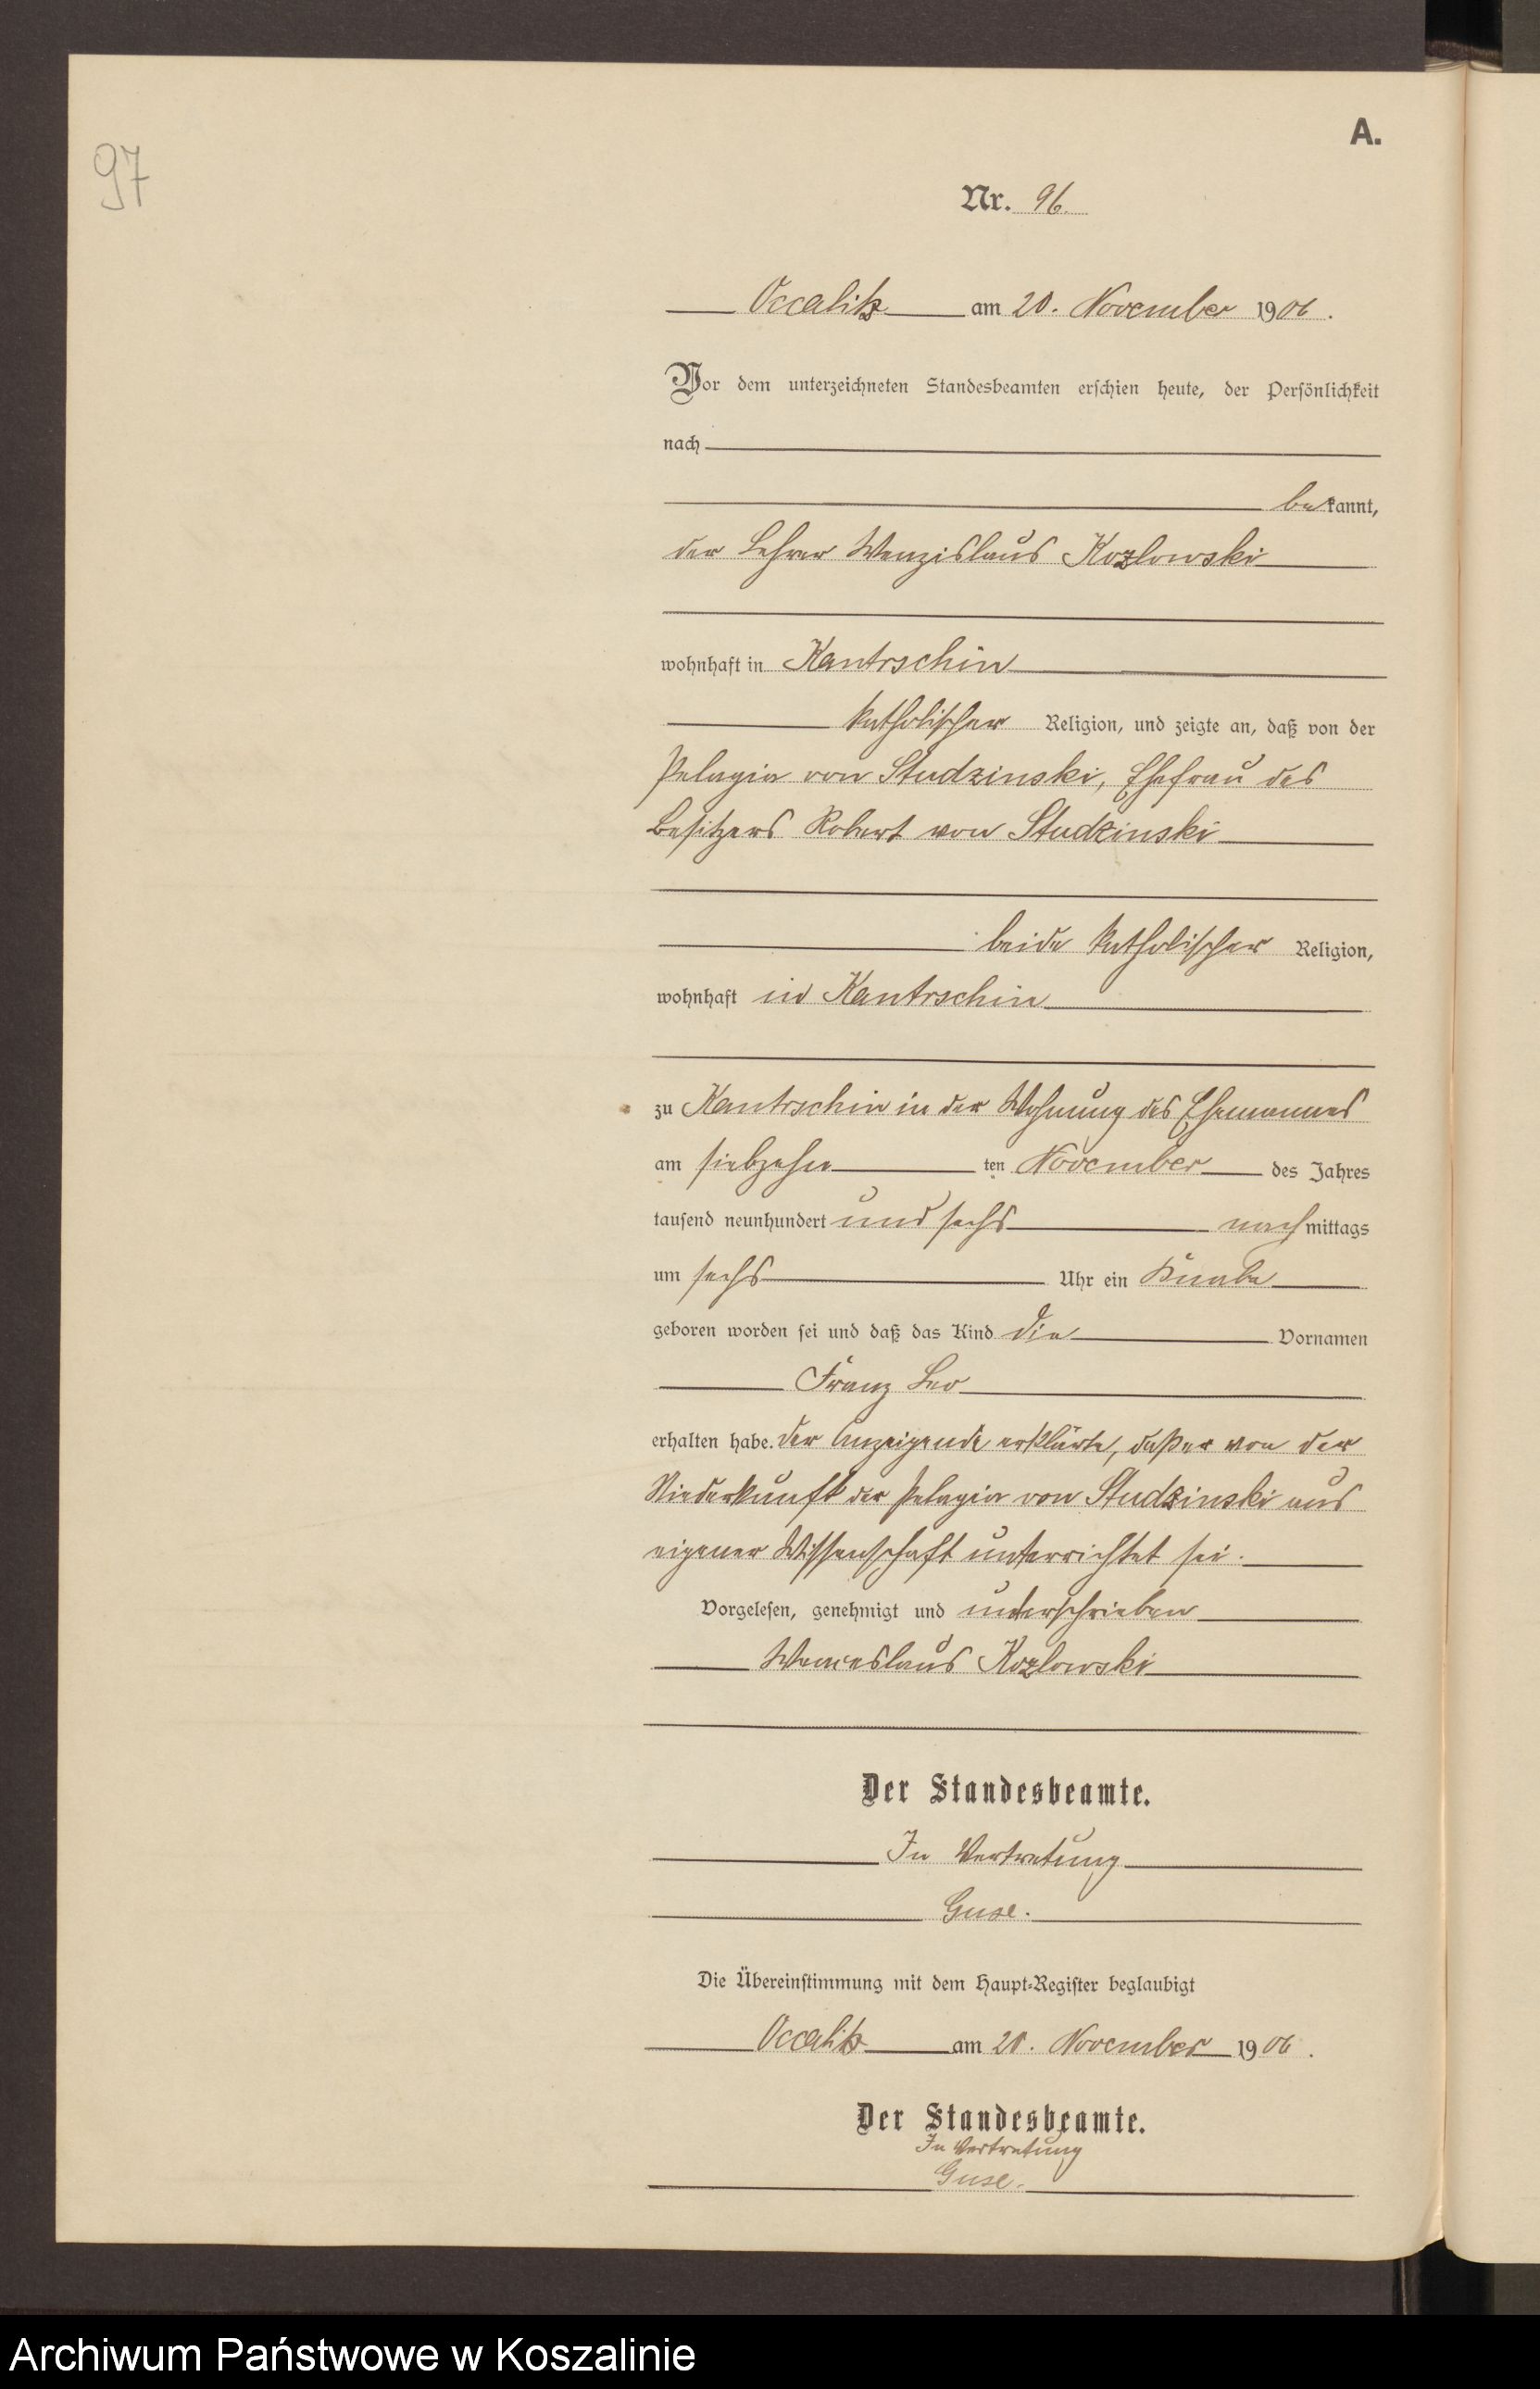 A.
97
Nr. 96.
Occalitz am 20. November 1906.
Vor dem unterzeichneten Standesbeamten erschien heute, der Persönlichkeit
nach
bekannt,
der Lehrer Wenzislaus Kozlowski
wohnhaft in Kantrschin
katholischer Religion, und zeigte an, daß von der
Pelagia von Studzinski, Ehefrau des
Besitzers Robert von Studzinski
beide katholischer Religion,
wohnhaft in Kantrschin
zu Kantrschin in der Wohnung des Ehemannes
am siebzehn ten November des Jahres
tausend neunhundert und sechs nachmittags
um sechs Uhr ein Knabe
geboren worden sei und daß das Kind die Vornamen
Franz Leo
erhalten habe. Der Anzeigende erklärte, daß er von der
Niederkunft der Pelagia von Studzinski aus
eigener Wissenschaft unterrichtet sei.
Vorgelesen, genehmigt und unterschrieben
Wenceslaus Kozlowski
Der Standesbeamte.
In Vertretung
Guse.
Die Übereinstimmung mit dem Haupt-Register beglaubigt
Occalitz am 20. November 1906.
Der Standesbeamte.
In Vertretung
Guse.
Archiwum Państwowe w Koszalinie